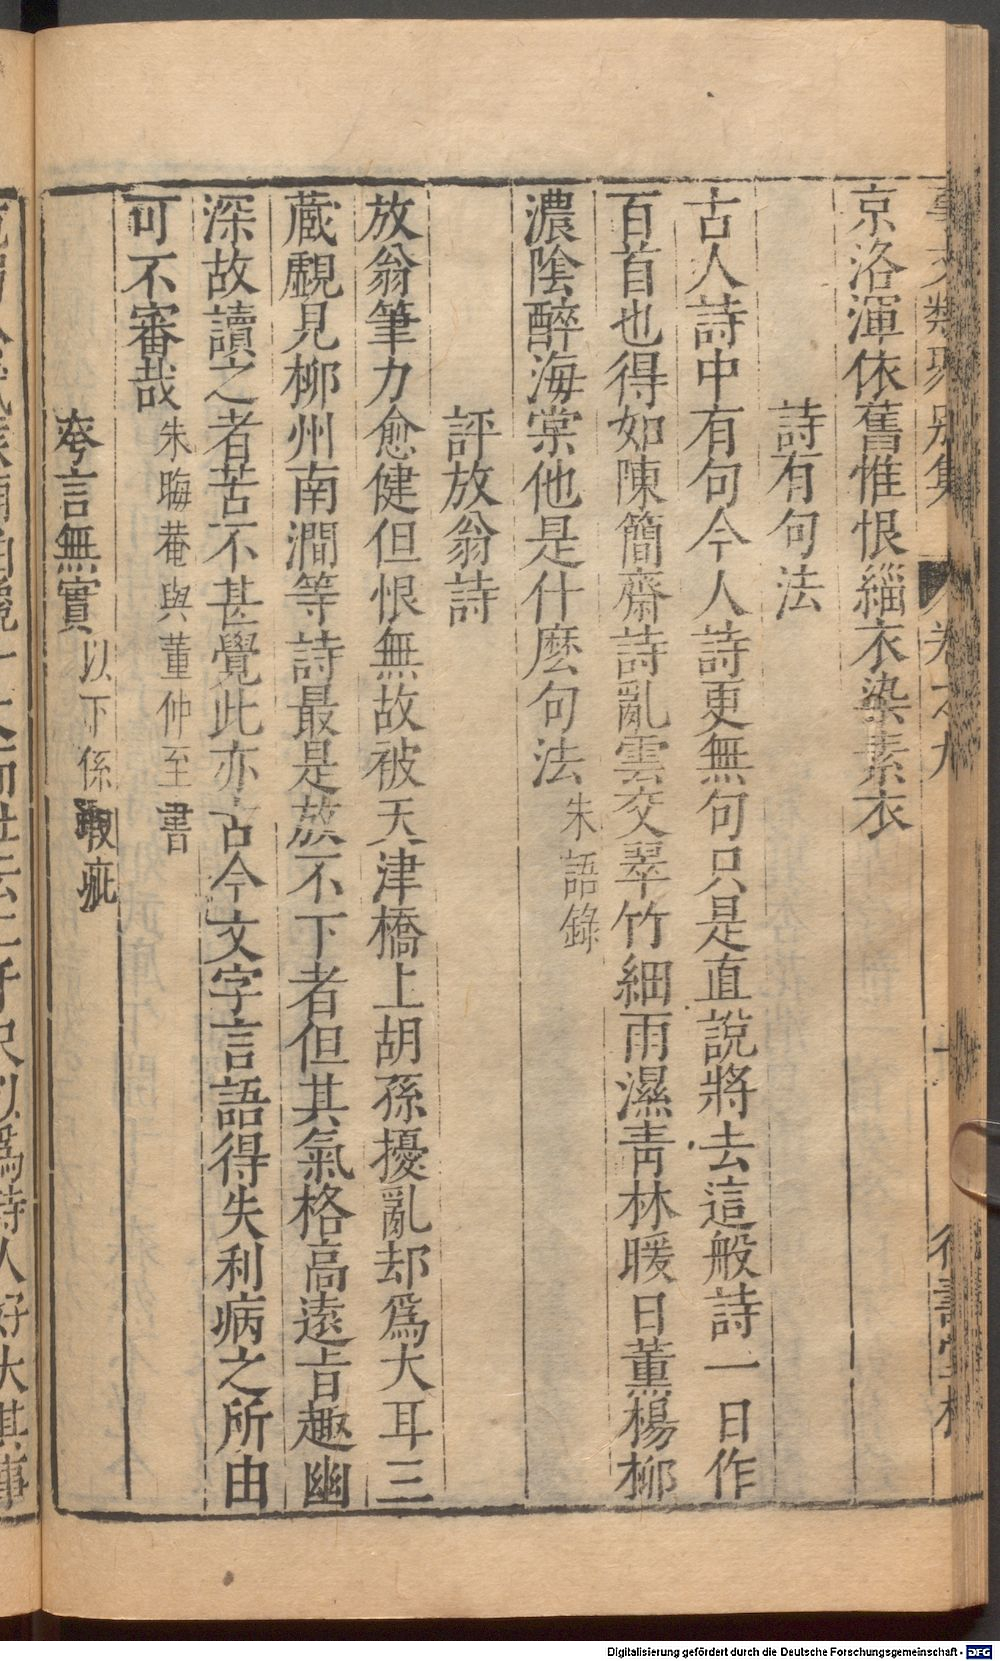 事文類聚別集 卷之九
京洛渾依舊惟恨緇衣染素衣
詩有句法
古人詩中有句今人詩更無句只是直說將去這般詩一日作
百首也得如陳簡齋詩亂雲交翠竹細雨濕靑林暖日薰楊柳
濃陰醉海棠他是什麽句法朱語錄
評放翁詩
放翁筆力愈健但恨無故被天津橋上胡孫擾亂却爲大耳三
蔵覷見柳州南澗等詩最是放不下者但其氣格高遠旨趣幽
深故讀之者苦不甚覺此亦古今文字言語得失利病之所由
可不審哉朱晦菴與董仲至書
夸言無實以下係瑕疵
Digitalisierung gefördert durch die Deutsche Forschungsgemeinschaft - DFG